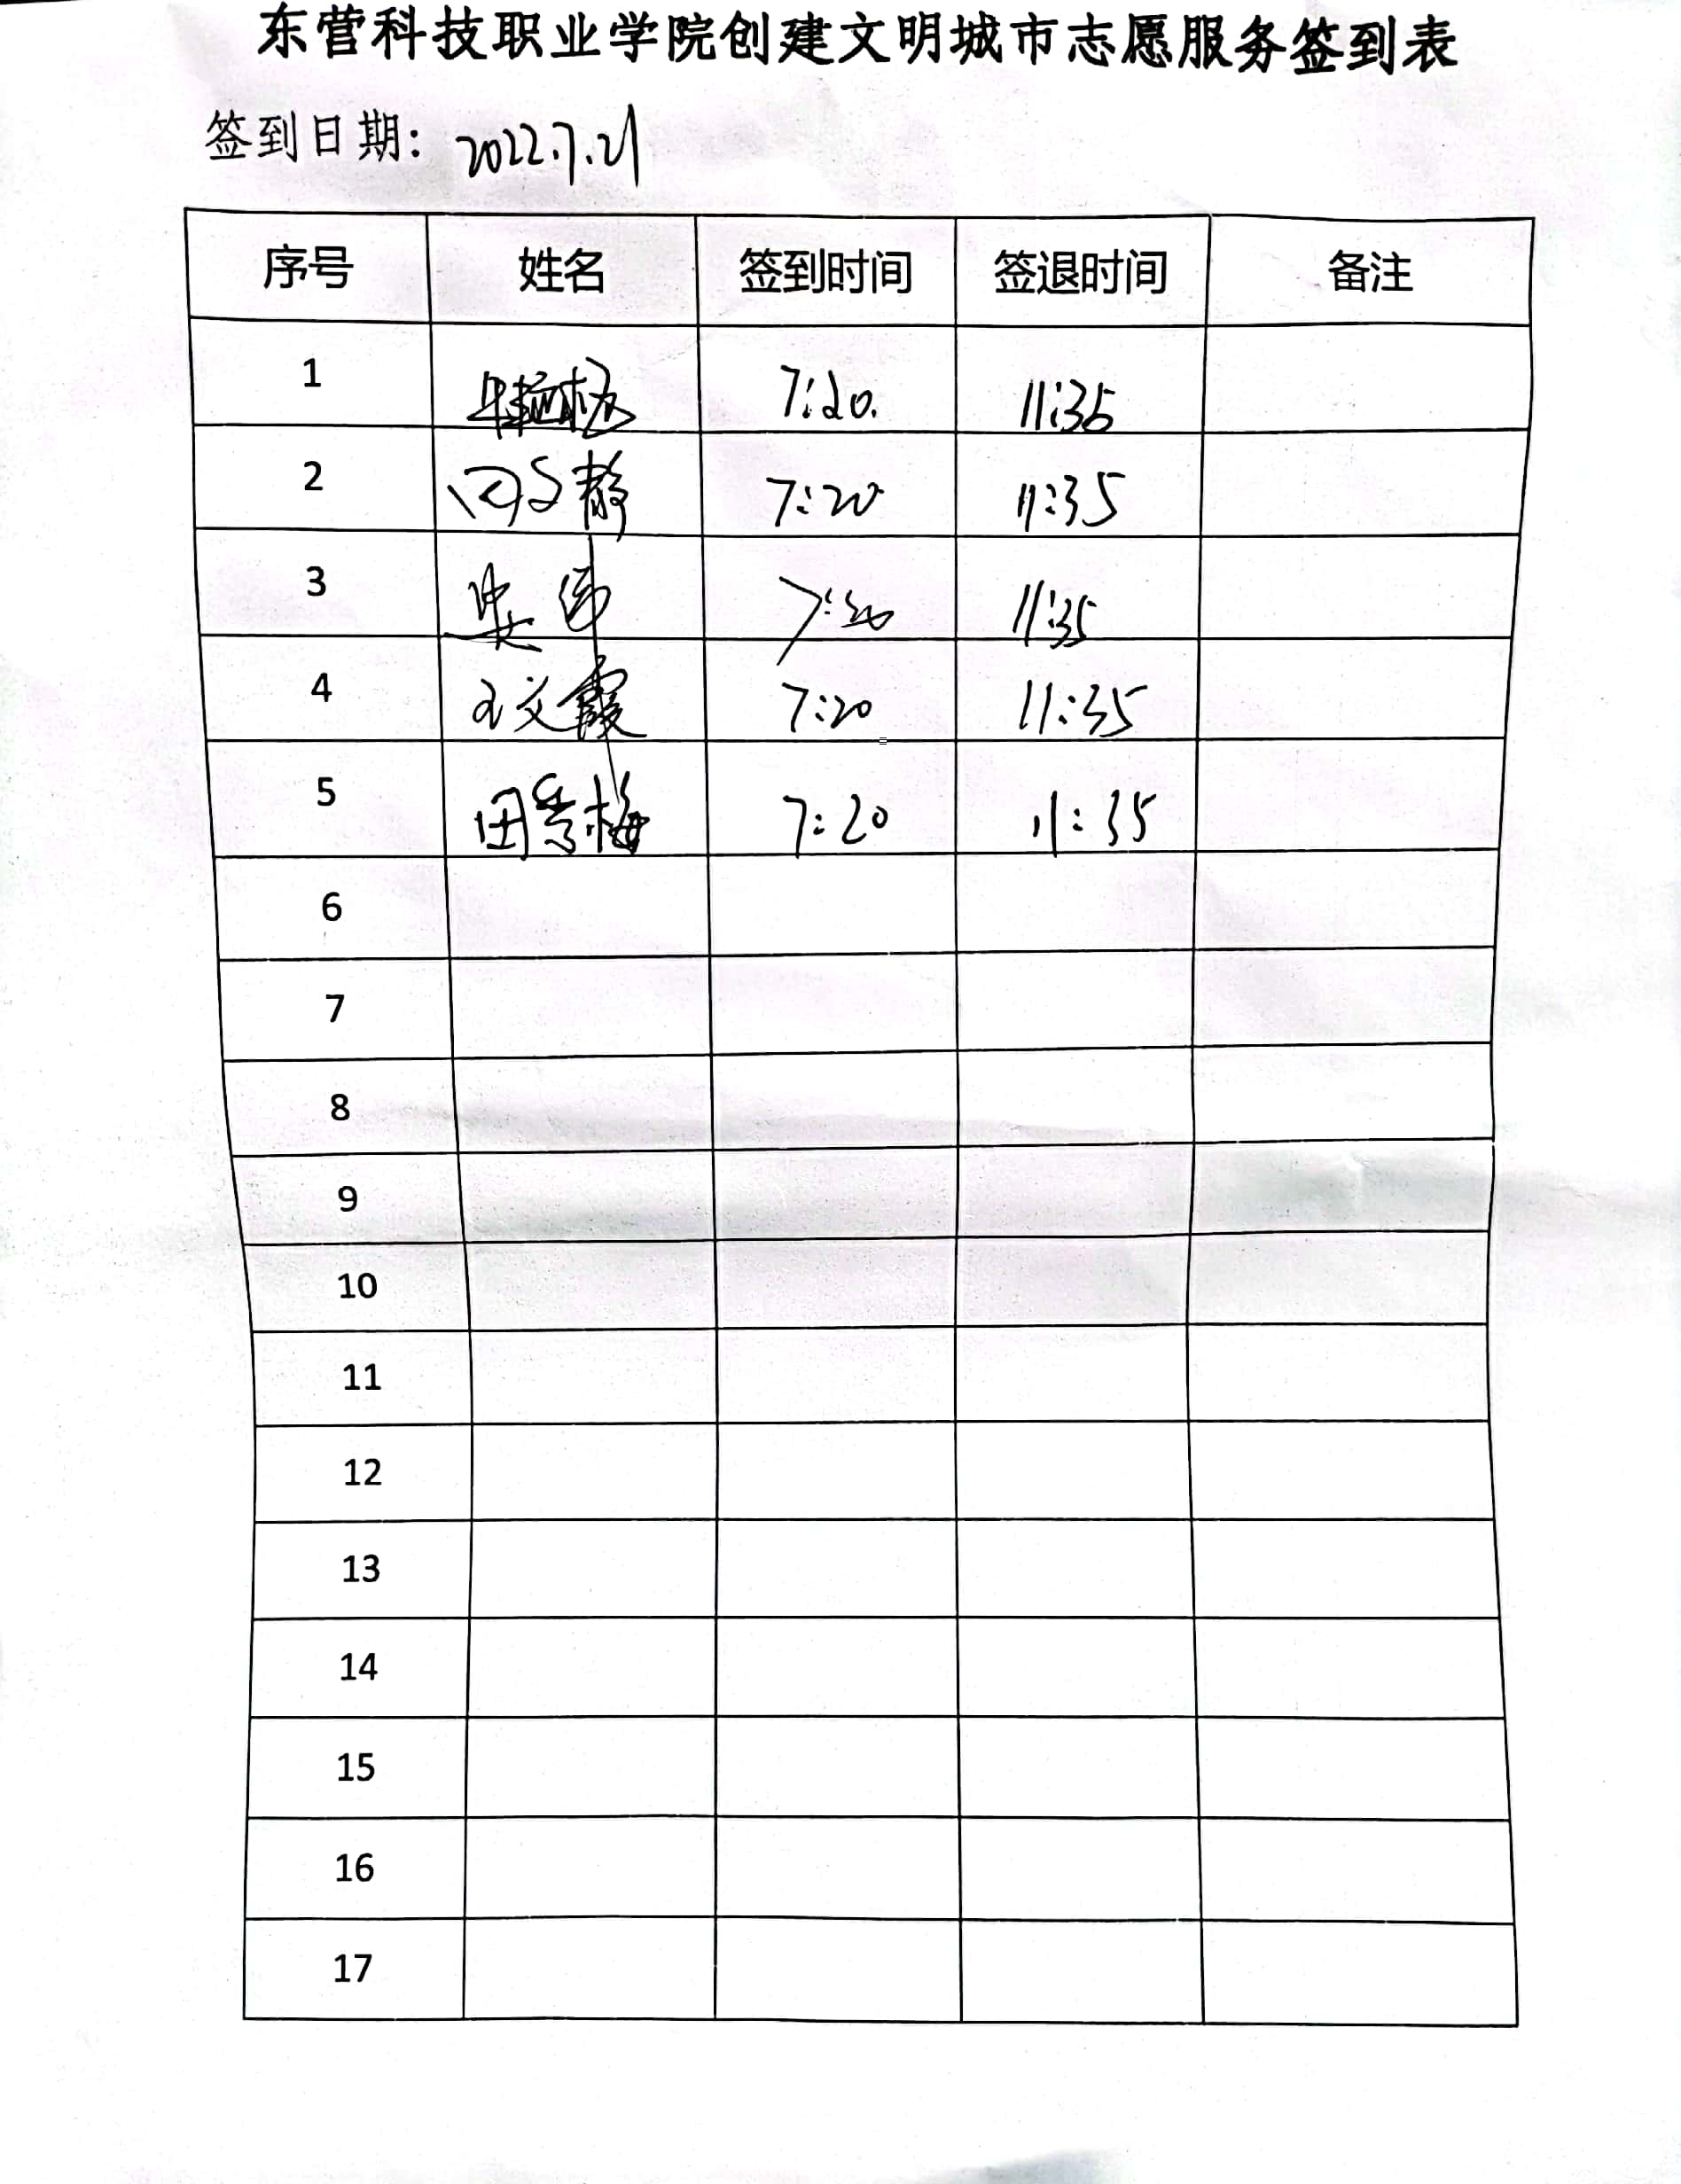 东营科技职业学院创建文明城市志愿服务签到表
签到日期: 2022.7.21
序号 姓名 签到时间 签退时间 备注
1 7:20. 11:35
2 7:20 11:35
3 7:20 11:35
4 文霞 7:20 11:35
5 田秀梅 7:20 11:35
6
7
8
9
10
11
12
13
14
15
16
17